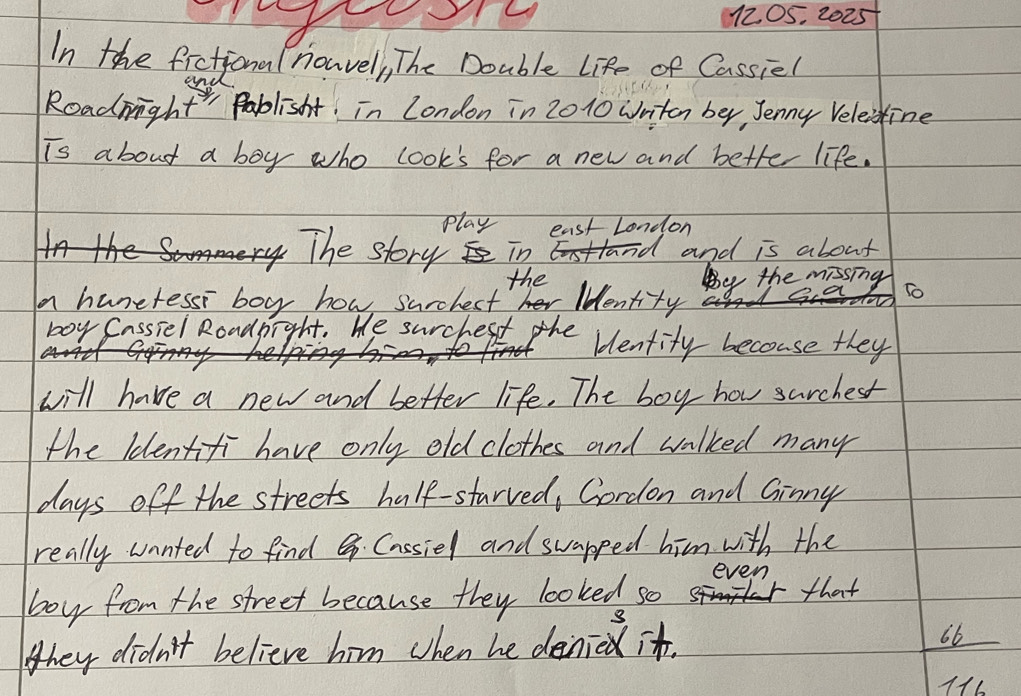 english
12.05.2025
In the fictional nouvel „The Double Life of Cassiel
and
Roadnight" Pablisht in London in 2010 Writen bey Jenny Velentine
is about a boy who look's for a new and better life.
play east London
In the Summery The story is in Eastland and is about
the bey the missing
a hunetessi boy how surchest her Identity and a to
boy Cassiel Roadnight. He surchest the
and Ginny helping him, to find Identity becouse they
will have a new and better life. The boy how surchest
the Identiti have only old clothes and walked many
days off the streets half-starved, Gordon and Ginny
really wanted to find Cassiel and swapped him with the
even
boy from the street because they looked so similar that
s
they didn't believe him when he denied it.
66
116